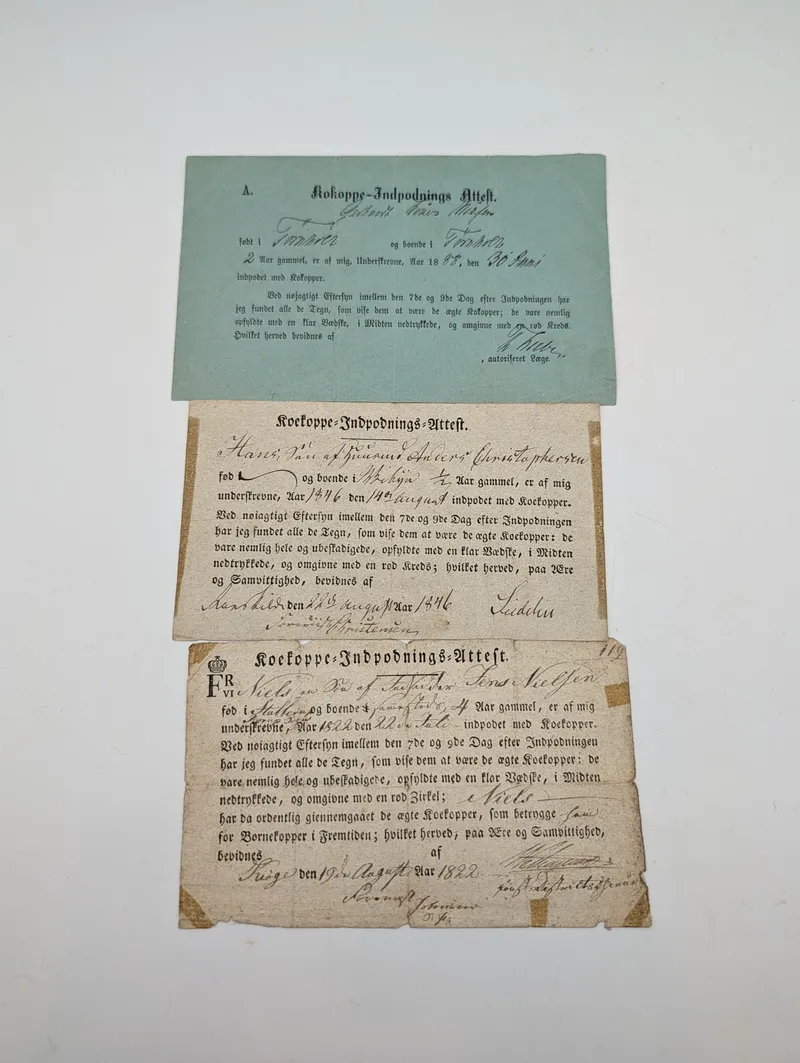 A. Kokoppe-Indpodnings Attest.
født i Tornholt og boende i Tornholt
2 Aar gammel, er af mig, Underskrevne, Aar 1888. den 30 Juni
indpodet med Kokopper.
Ved nøjagtigt Eftersyn imellem den 7de og 9de Dag efter Indpodningen har
jeg fundet alle de Tegn, som vise dem at være de ægte Kokopper; de vare nemlig
opfyldte med en klar Vædske, i Midten nedtrykkede, og omgivne med en rød Kreds.
Hvilket herved bevidnes af
, autoriseret Læge.
Koekoppe-Indpodnings-Attest.
Hans, Søn af Huusmd Anders Christophersen
fød og boende i 1/2 Aar gammel, er af mig
underskrevne, Aar 1846 den 14de August indpodet med Koekopper.
Ved nøiagtigt Eftersyn imellem den 7de og 9de Dag efter Indpodningen
har jeg fundet alle de Tegn, som vise dem at være de ægte Koekopper: de
vare nemlig hele og ubeskadigede, opfyldte med en klar Vædske, i Midten
nedtrykkede, og omgivne med en rød Kreds; hvilket herved, paa Ære
og Samvittighed, bevidnes af
Roeskilde den 22de August Aar 1846
Christensen
119
Koekoppe-Indpodnings-Attest.
FR VI Niels, en Søn af Indsidder Jens Nielsen
fød i og boende i sammesteds, 4 Aar gammel, er af mig
underskrevne, Aar 1822 den 22de Juli indpodet med Koekopper.
Ved nøiagtigt Eftersyn imellem den 7de og 9de Dag efter Indpodningen
har jeg fundet alle de Tegn, som vise dem at være de ægte Koekopper: de
vare nemlig hele og ubeskadigede, opfyldte med en klar Vædske, i Midten
nedtrykkede, og omgivne med en rød Zirkel; Niels
har da ordentlig giennemgaaet de ægte Koekopper, som betrygge ham
for Børnekopper i Fremtiden; hvilket herved, paa Ære og Samvittighed,
bevidnes af
Kiøge den 19de August Aar 1822